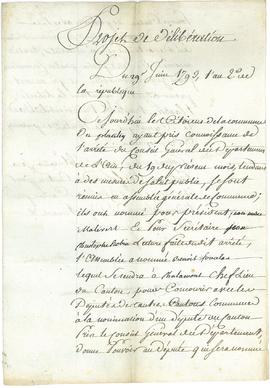 Projet de délibération
Du 29 Juin 1793, l'an 2e de
la république
Cejourdhui les Citoiens de la commune
du ayant pris Connoissance de
l'arreté du Conseil Général du Departement
de l'Ain, du 19 du présent mois, tendant
à des mesures de salut public, se sont
réunis en assemblée générale de Commune;
ils ont nommé pour président jean
Malivert & pour Secrétaire jean
Lecture faite dudit arreté,
l'assemblée a nommé
lequel se rendra à Chalamont Chef lieu
du Canton, pour Concourir avec les
Députés des autres Communes
à la nomination d'un député du Canton
Près le Conseil Général du Département,
donne Pouvoir au député qui sera nommé